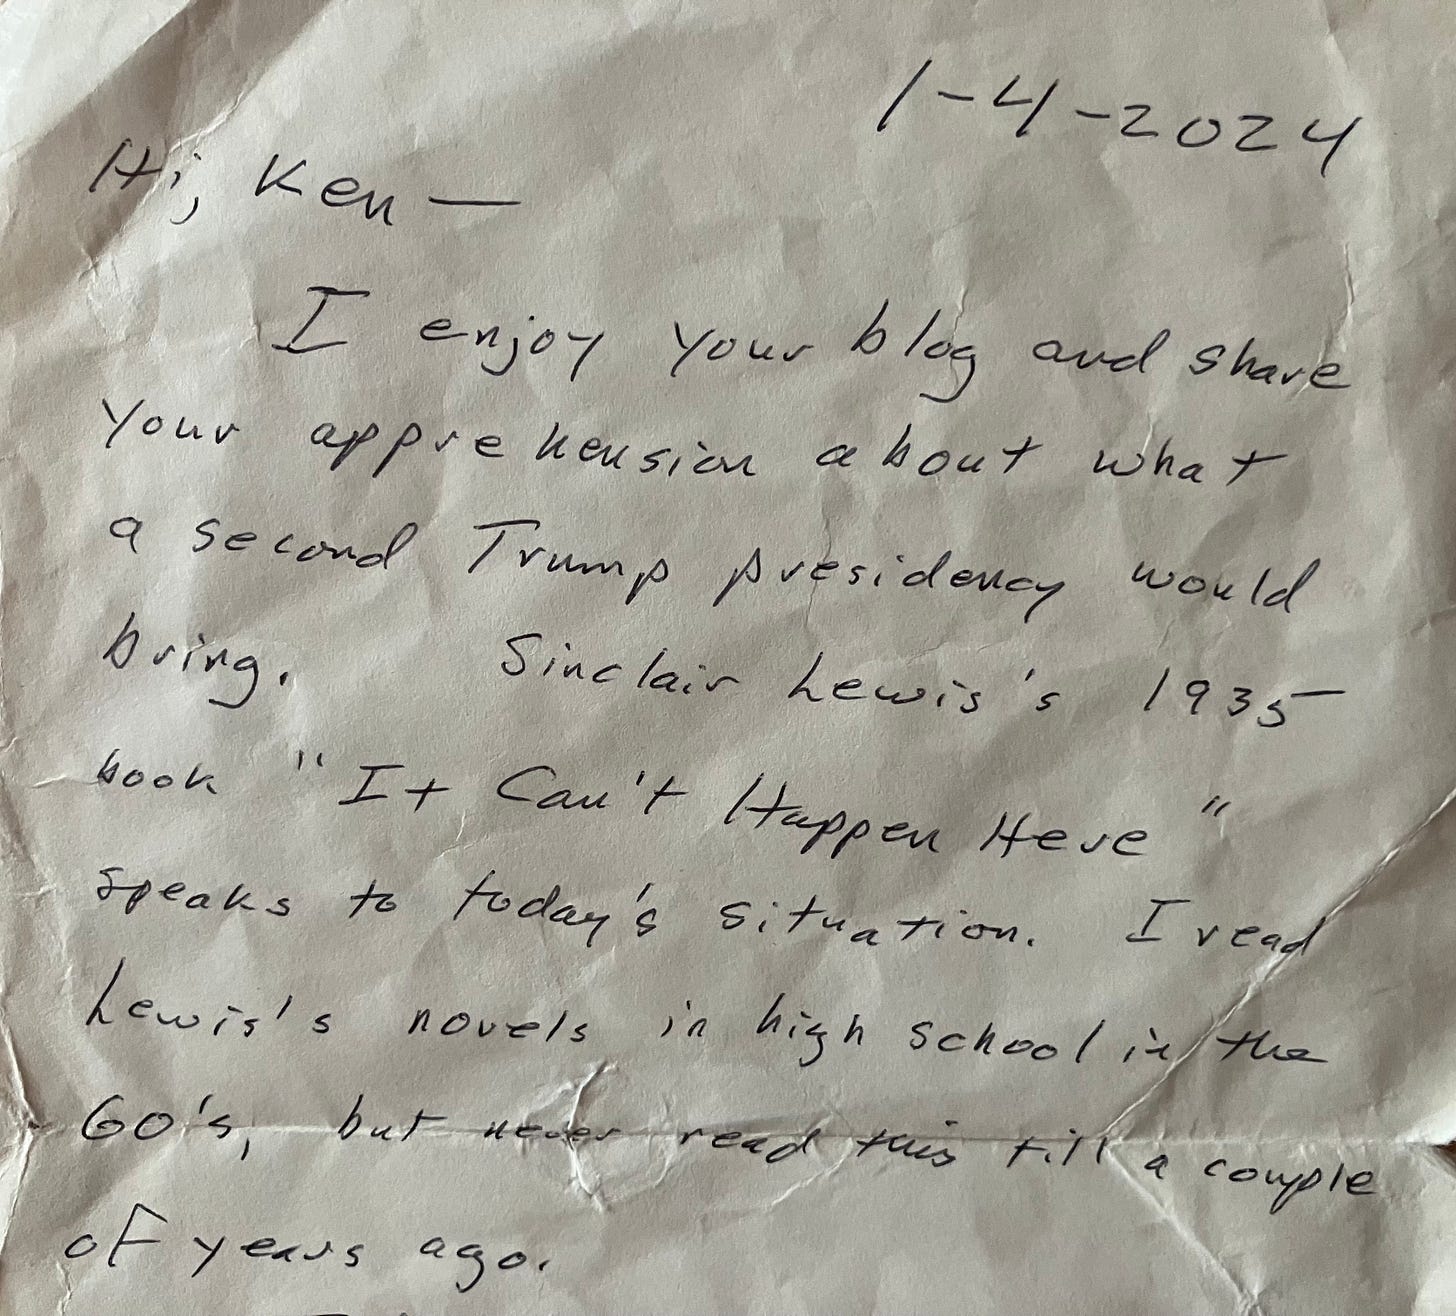 1-4-2024
Hi, Ken —
I enjoy your blog and share
your apprehension about what
a second Trump presidency would
bring. Sinclair Lewis's 1935
book "It Can't Happen Here"
speaks to today's situation. I read
Lewis's novels in high school in the
60's, but never read this till a couple
of years ago.